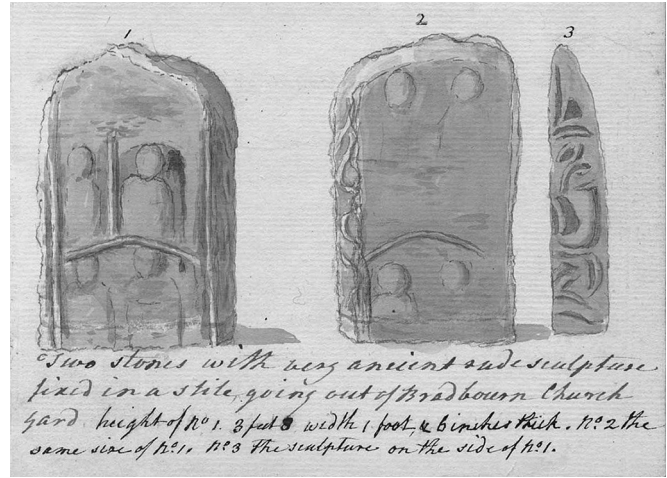 1 2 3
Two stones with very ancient rude sculpture
fixed in a stile, going out of Bradbourn Church
yard. height of No 1. 3 feet 8 width 1 foot, & 6 inches thick. No. 2 the
same size of No 1. No 3 the sculpture on the side of No 1.